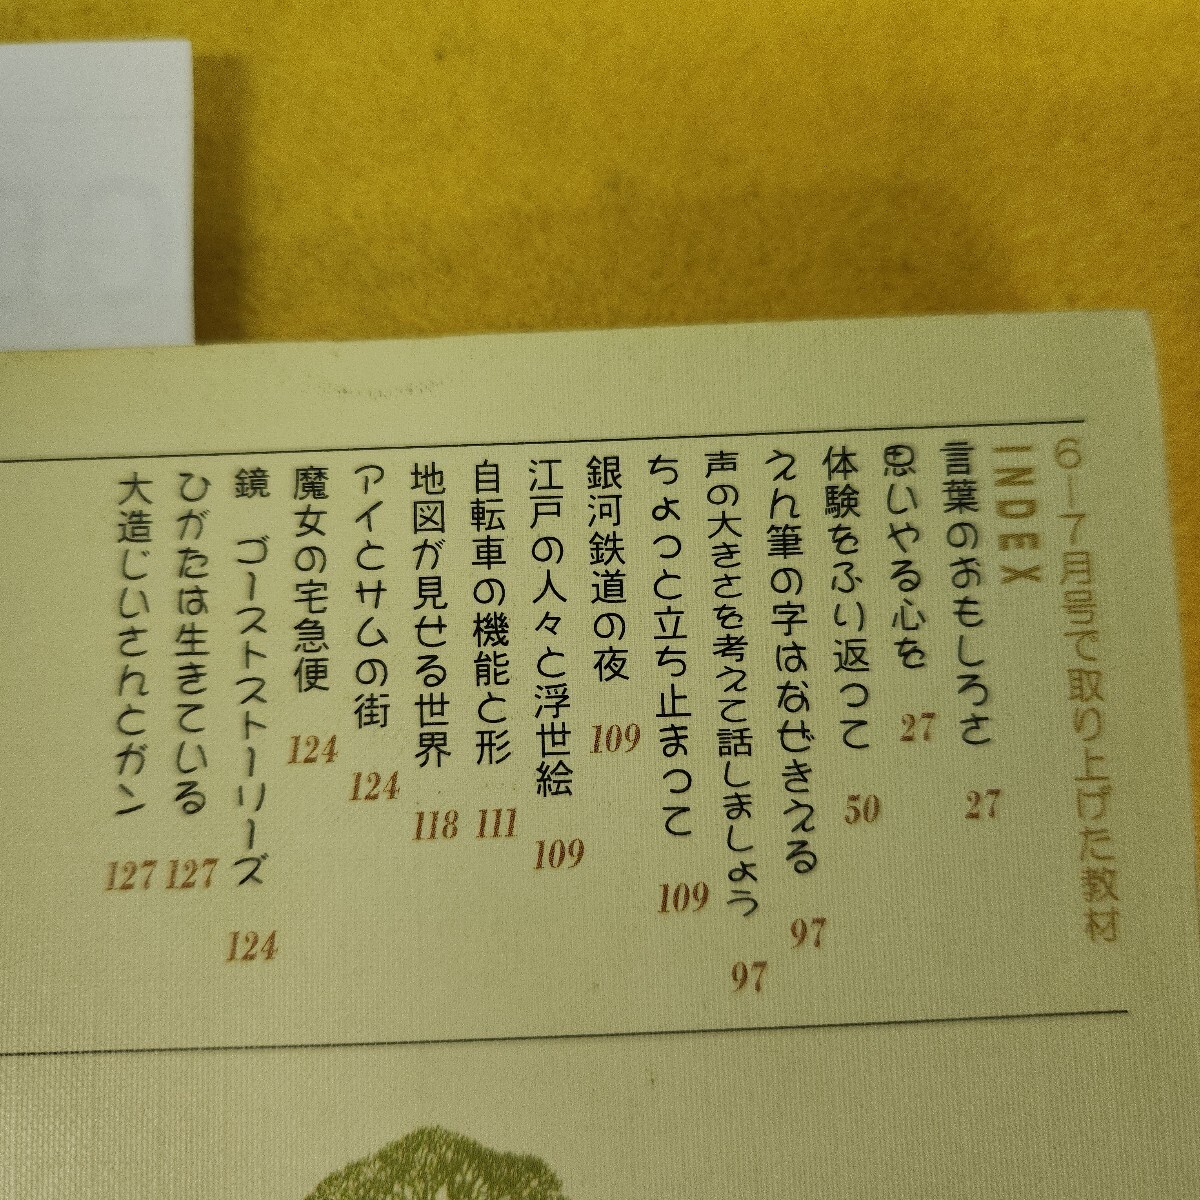 6—7月号で取り上げた教材
INDEX
言葉のおもしろさ 27
思いやる心を 27
体験をふり返って 50
えん筆の字はなぜきえる 97
声の大きさを考えて話しましょう 97
ちょっと立ち止まって 109
銀河鉄道の夜 109
江戸の人々と浮世絵 109
自転車の機能と形 111
地図が見せる世界 118
アイとサムの街 124
魔女の宅急便 124
鏡 ゴーストストーリーズ 124
ひがたは生きている 127
大造じいさんとガン 127